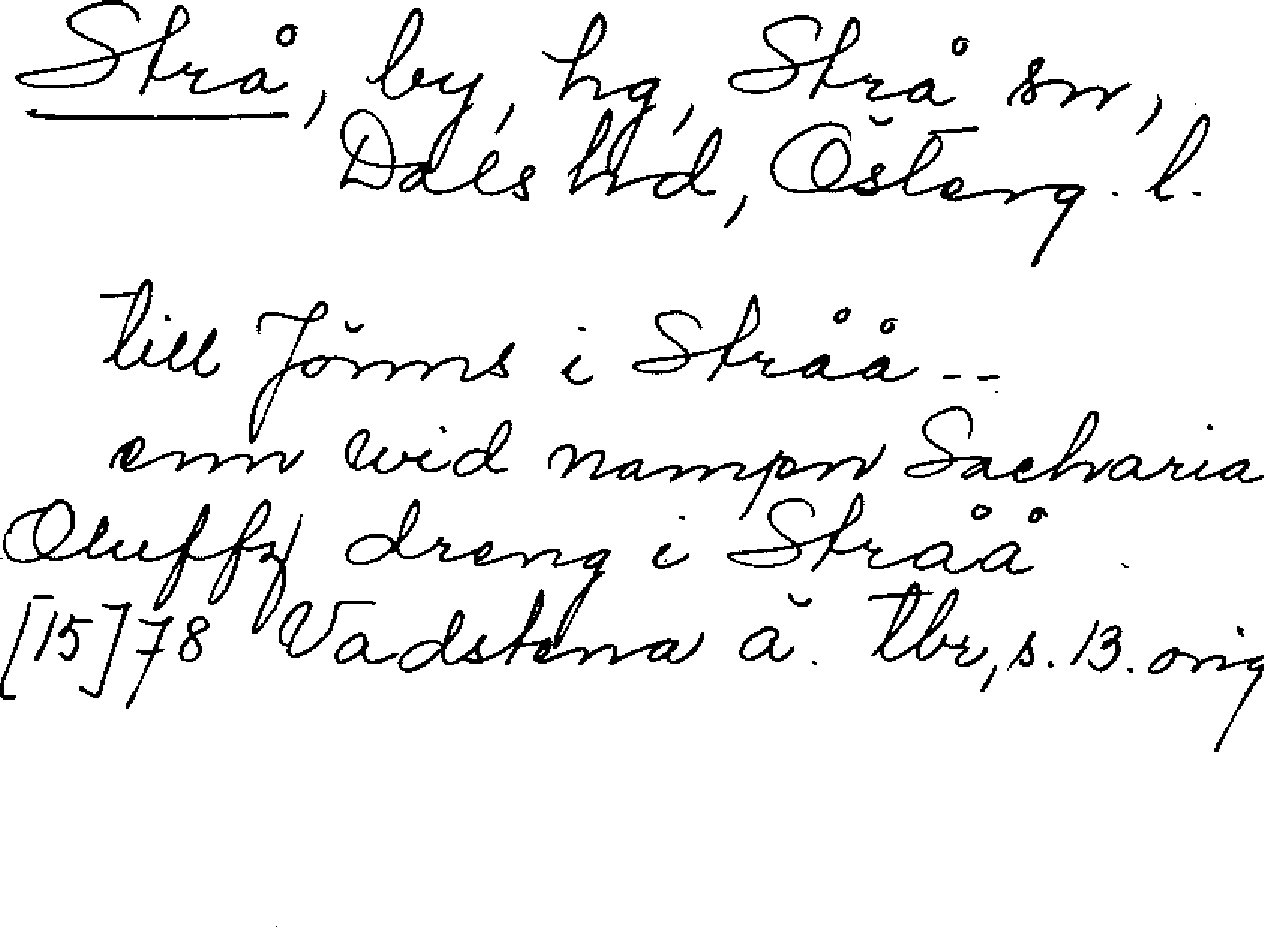 Strå, by, hg, Strå sn,
Dals hd, Österg. l.
till Jönns i Stråå --
enn wid nampn Sacharia
Oluffz dreng i Stråå.
[15]78 Vadstena ä. tbr, s. 13. orig